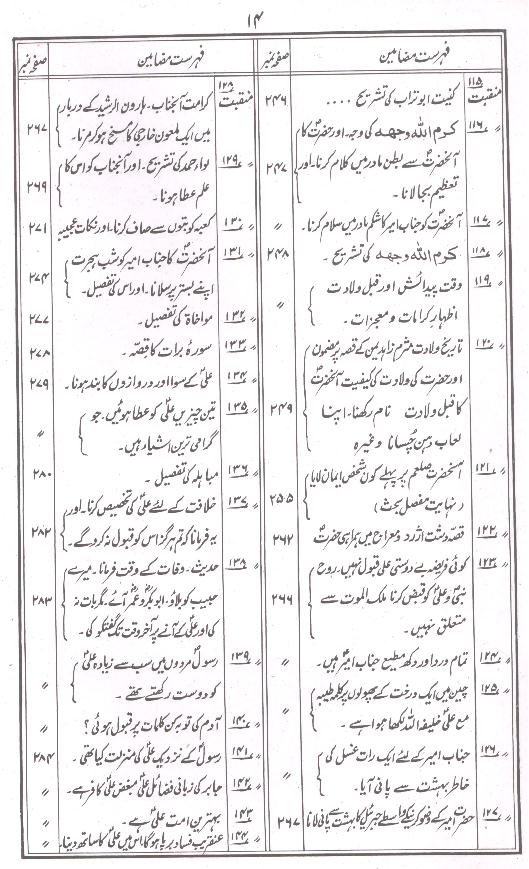 ۱۴
فہرست مضامین صفحہ نمبر
منقبت ۱۱۵ کنیت ابو تراب کی تشریح .... ۲۴۶
〃 ۱۱۶ کرم اللہ وجہہ کی وجہ۔ اور حضرت کا
آنحضرتؐ سے بطن مادر میں کلام کرنا۔ اور ۲۴۷
تعظیم بجا لانا۔
〃 ۱۱۷ آنحضرتؐ کو جناب امیر کا شکم مادر میں سلام کرنا۔ 〃
〃 ۱۱۸ کرم اللہ وجہہ کی تشریح۔ ۲۴۸
〃 ۱۱۹ وقت پیدائش اور قبل ولادت
اظہار کرامات و معجزات۔ 〃
〃 ۱۲۰ تاریخ ولادت مثرم زاہد بن کے قصہ پر مضمون
اور حضرت کی ولادت کی کیفیت آنحضرتؐ
کا قبل ولادت نام رکھنا۔ اپنا ۲۴۹
لعاب دہن چسانا وغیرہ
〃 ۱۲۱ آنحضرت صلعم پر پہلے کون شخص ایمان لایا
(نہایت مفصل بحث) ۲۵۵
〃 ۱۲۲ قصہ دشت اژدر و معراج میں ہمراہی حضرتؐ ۲۶۲
〃 ۱۲۳ کوئی فریضہ بے دوستی علی قبول نہیں۔ روح
نبیؐ و علیؑ کو قبض کرنا ملک الموت سے ۲۶۶
متعلق نہیں۔
〃 ۱۲۴ تمام درد اور دکھ مطیع جناب امیرؑ ہیں۔ 〃
〃 ۱۲۵ چین میں ایک درخت کے پھولوں پر کلمہ طیبہ
مع علیؑ خلیفۃ اللہ لکھا ہوا ہے۔ 〃
〃 ۱۲۶ جناب امیر کے لئے ایک رات غسل کی
خاطر بہشت سے پانی آیا۔ 〃
〃 ۱۲۷ حضرت امیر کے وضو کرنیکے واسطے جبرئیل کا بہشت سے پانی لانا ۲۶۷
فہرست مضامین صفحہ نمبر
منقبت ۱۲۸ کرامت آنجناب۔ ہارون الرشید کے دربار
میں ایک ملعون خارجی کا مسخ ہو کر مرنا۔ ۲۶۷
〃 ۱۲۹ لواء حمد کی تشریح۔ اور آنجناب کو اس کا
علم عطا ہونا۔ ۲۶۹
〃 ۱۳۰ کعبہ کو بتوں سے صاف کرنا۔ اور نکات عجیبہ ۲۷۱
〃 ۱۳۱ آنحضرتؐ کا جناب امیر کو شب ہجرت
اپنے بستر پر سلانا۔ اور اس کی تفصیل۔ ۲۷۴
〃 ۱۳۲ مواخاۃ کی تفصیل۔ ۲۷۷
〃 ۱۳۳ سورہ برات کا قصہ۔ ۲۷۸
〃 ۱۳۴ علیؑ کے سوا اور دروازوں کا بند ہونا۔ ۲۷۹
〃 ۱۳۵ تین چیزیں علیؑ کو عطا ہوئیں۔ جو
گرامی ترین اشیاء ہیں۔ 〃
〃 ۱۳۶ مباہلہ کی تفصیل۔ ۲۸۰
〃 ۱۳۷ خلافت کے لئے علیؑ کی تخصیص کرنا۔ اور
یہ فرمانا کہ تم ہرگز اس کو قبول نہ کرو گے۔ ۲۸۲
〃 ۱۳۸ حدیث۔ وفات کے وقت فرمانا۔ میرے
حبیب کو بلاؤ۔ ابوبکرؓ و عمرؓ آئے۔ مگر بات نہ ۲۸۳
کی اور علیؑ کے آنے پر آخر وقت تک گفتگو کی۔
〃 ۱۳۹ رسولؐ مردوں میں سب سے زیادہ علیؑ
کو دوست رکھتے تھے۔ 〃
〃 ۱۴۰ آدم کی توبہ کن کلمات پر قبول ہوئی؟ 〃
〃 ۱۴۱ رسولؐ کے نزدیک علیؑ کی منزلت کیا تھی۔ ۲۸۴
〃 ۱۴۲ جابر کی زبانی فضائل علیؑ مبغض علیؑ کافر ہے۔ 〃
〃 ۱۴۳ بہترین امت علیؑ ہے۔ 〃
〃 ۱۴۴ عنقریب فساد برپا ہوگا، اس میں علیؑ کا ساتھ دینا۔ 〃